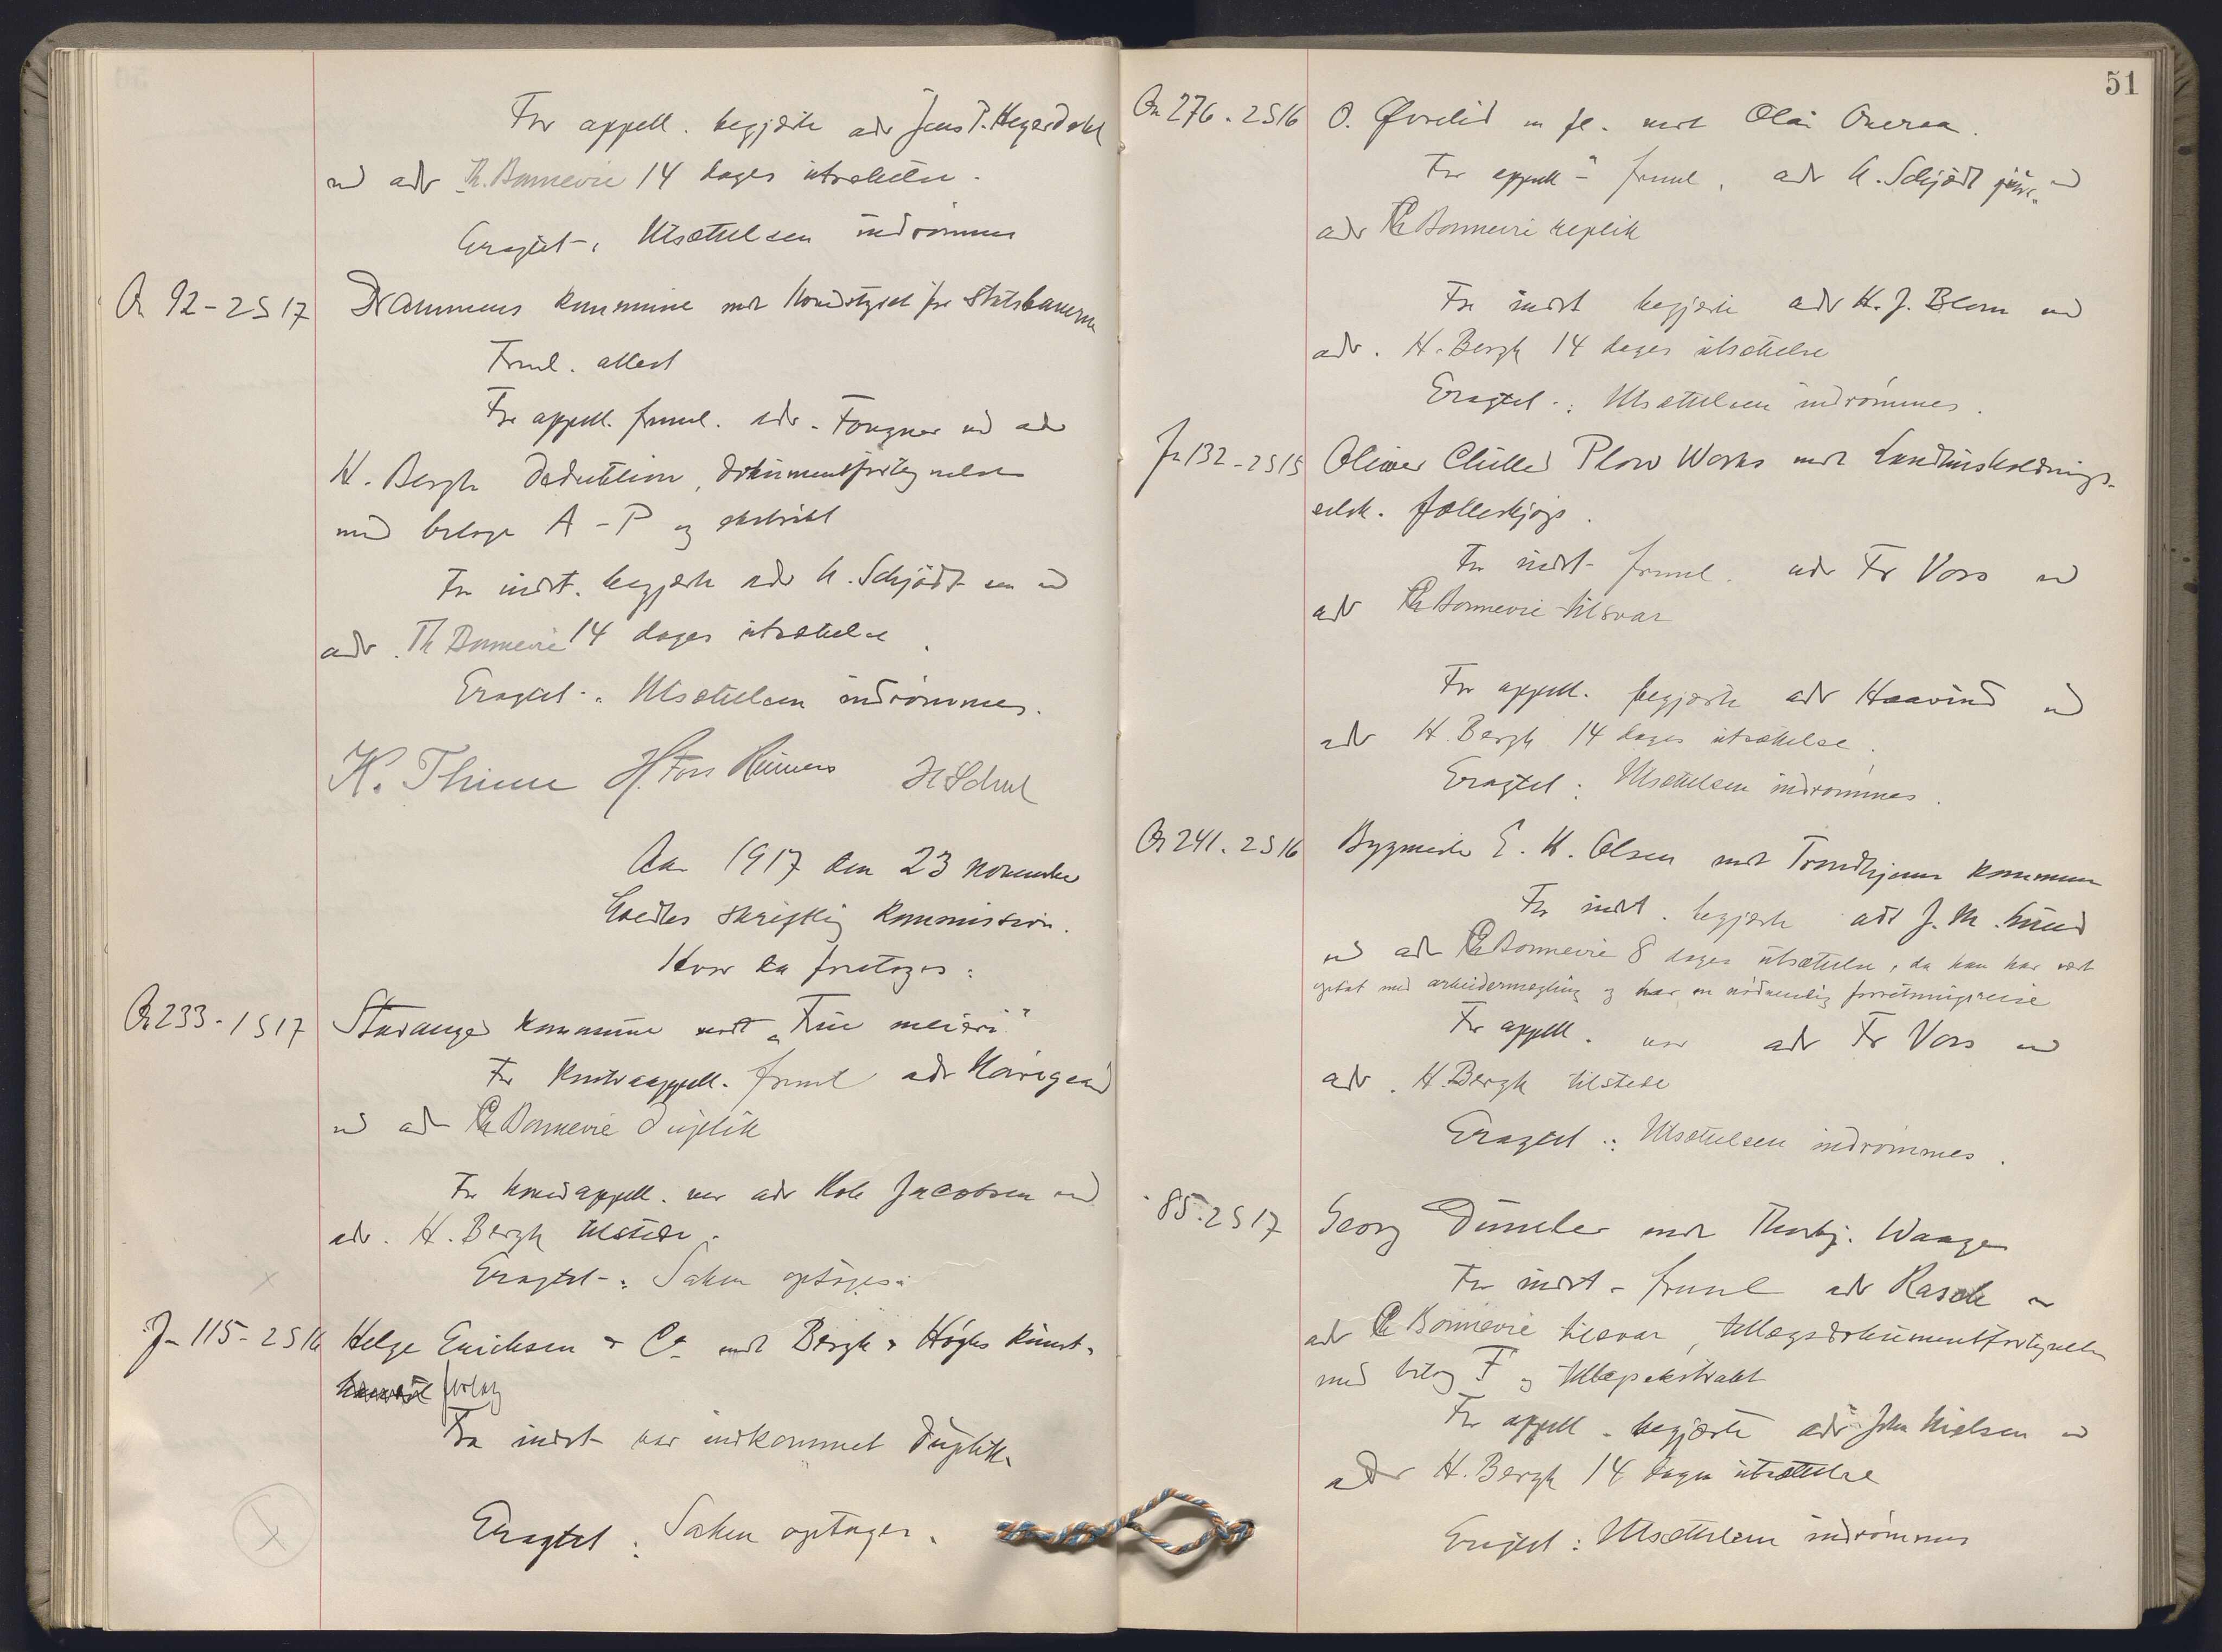 For appell. begjærte adv Jens P. Hegerdahl
ved adv Th. Bonnevie 14 dages utsættelse.
Eragtet: Utsættelsen indrømmes
92-2 S 17 Drammens kommune mot Hovedstyret for Statsbanerne
Freml. attest
For appell. freml. adv. Fougner ved adv
H. Bergh deduktion, dokumentfortegnelse
med bilage A-P og ekstrakt
For indst. begjærte adv A. Schjødt sen ved
adv. Th Bonnevie 14 dages utsættelse.
Eragtet: Utsættelsen indrømmes.
K. Thime H. Foss Reimers
Aar 1917 den 23 november
holdtes skriftlig kommission.
Hvor da foretages:
233-1 S 17 Stavanger kommune mot "Fru meieri"
For kontraappell. freml adv
ved adv Th Bonnevie duplik
For hovedappell. var adv Hole Jacobsen ved
adv. H. Bergh tilstede.
Eragtet: Saken optages.
J 115-2 S 16 Helge Erichsen & Co mot Bergh & Høghs kunst-
forlag
Fra indst var indkommet duplik.
Eragtet: Saken optages.
51
276.2 S 16 O. Øvrelid m fl. mot Olai Overaa.
For appell freml. adv A. Schjødt jun. ved
adv Th Bonnevie replik
For indst begjærte adv H. J. Blom ved
adv. H. Bergh 14 dages utsættelse
Eragtet: Utsættelsen indrømmes.
J 132-2 S 15 Oliver Chilled Plow Works mot Landhusholdnings-
selsk. fælleskjøp.
For indst freml. adv Fr Voss ved
adv Th Bonnevie tilsvar
For appell. begjærte adv Haavind ved
adv H. Bergh 14 dages utsættelse.
Eragtet: Utsættelsen indrømmes.
241.2 S 16 Bygmester E. K. Olsen mot Trondhjems kommune
For indst. begjærte adv J. M. Lund
ved adv Th Bonnevie 8 dages utsættelse, da han har vært
optat med arbeidermægling og har en nødvendig forretningsreise
For appell. var adv Fr Voss ved
adv. H. Bergh tilstede
Eragtet: Utsættelsen indrømmes.
85.2 S 17 Georg mot Thorbj. Waage
For indst. freml adv Rasch ved
adv Th Bonnevie tilsvar, tillægsdokumentfortegnelse
med bilag F og tillægsekstrakt
For appell. begjærte adv John Nielsen ved
adv H. Bergh 14 dages utsættelse
Eragtet: Utsættelsen indrømmes